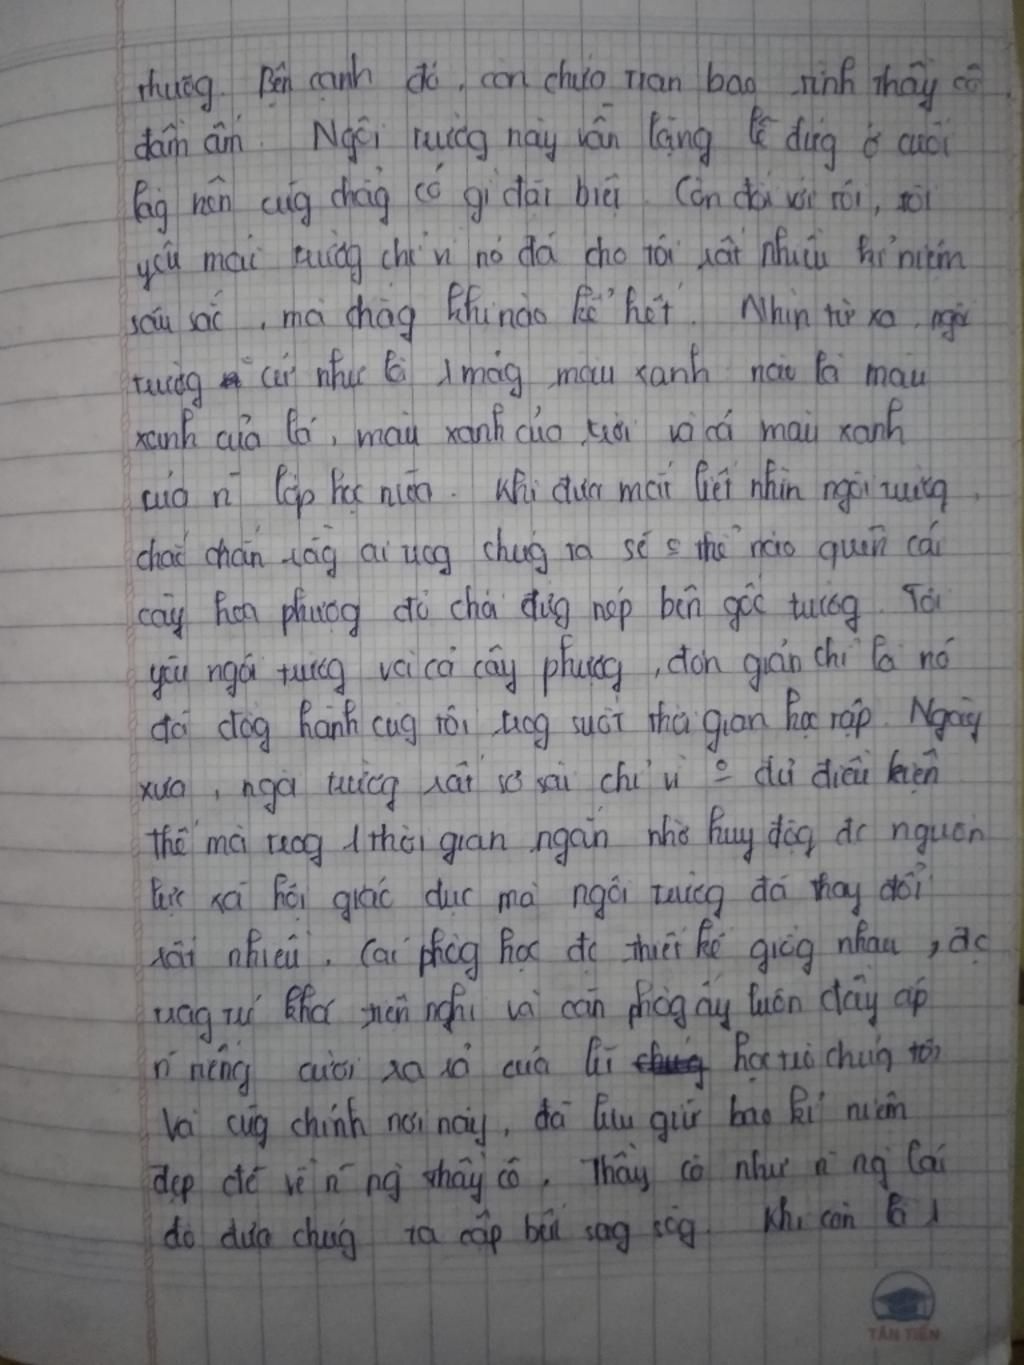 thươg. Bên cạnh đó, còn chứa tran bao tình thầy cô
đầm ấm. Ngôi trườg này vẫn lặng lẽ đứg ở cuối
làg nên cũg chẳg có gì đặt biệt. Còn đối với tôi, tôi
yêu mái trườg chỉ vì nó đã cho tôi rất nhiều kỉ niệm
sâu sắc, mà chẳg khi nào kể hết. Nhìn từ xa, ngôi
trườg cứ như là 1 mảg màu xanh nào là màu
xanh của lá, màu xanh của trời và cả màu xanh
của n~ lớp học nữa. Khi đưa mắt liết nhìn ngôi trườg,
chắc chắn rằg ai trog chúg ta sẽ o thể nào quên cái
cây hoa phượg đỏ chá đứg nép bên gốc tườg. Tôi
yêu ngôi trườg và cả cây phượg, đơn giản chỉ là nó
đã đồg hành cùg tôi trog suốt thời gian học tập. Ngày
xưa, ngôi trườg rất sơ sài chỉ vì o đủ điều kiện
thế mà trog 1 thời gian ngắn nhờ huy độg đc nguồn
lực xã hội giác dục mà ngôi trườg đã thay đổi
rất nhiều. Cái phòg học đc thiết kế giốg nhau, đc
trag trí khá tiện nghi và căn phòg ấy luôn đầy ắp
n~ tiếng cười ra rả của lũ chúg học trò chúg tôi
Và cũg chính nơi này, đã lưu giữ bao kỉ niệm
đẹp đẽ về n~ ng` thầy cô. Thầy cô như n~ ng` lái
đò đưa chúg ta cập bến sag sôg. Khi còn là 1
TÂN TIẾN